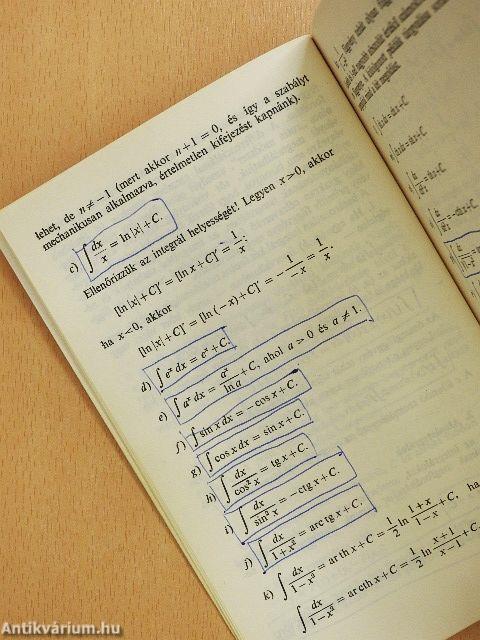 lehet, de n ≠ −1 (mert akkor n+1 = 0, és így a szabályt
mechanikusan alkalmazva, értelmetlen kifejezést kapnánk).
c) ∫ dx/x = ln |x| + C.
Ellenőrizzük az integrál helyességét! Legyen x > 0, akkor
[ln |x| + C]' = [ln x + C]' = 1/x;
ha x < 0, akkor
[ln |x| + C]' = [ln (−x) + C]' = − 1/−x = 1/x.
d) ∫ eˣ dx = eˣ + C.
e) ∫ aˣ dx = aˣ/ln a + C, ahol a > 0 és a ≠ 1.
f) ∫ sin x dx = −cos x + C.
g) ∫ cos x dx = sin x + C.
h) ∫ dx/cos² x = tg x + C.
i) ∫ dx/sin² x = −ctg x + C.
j) ∫ dx/1+x² = arc tg x + C.
k) ∫ dx/1−x² = ar th x + C = 1/2 ln 1+x/1−x + C, ha
∫ dx/1−x² = ar cth x + C = 1/2 ln x+1/x−1 + C.
Antikvárium.hu